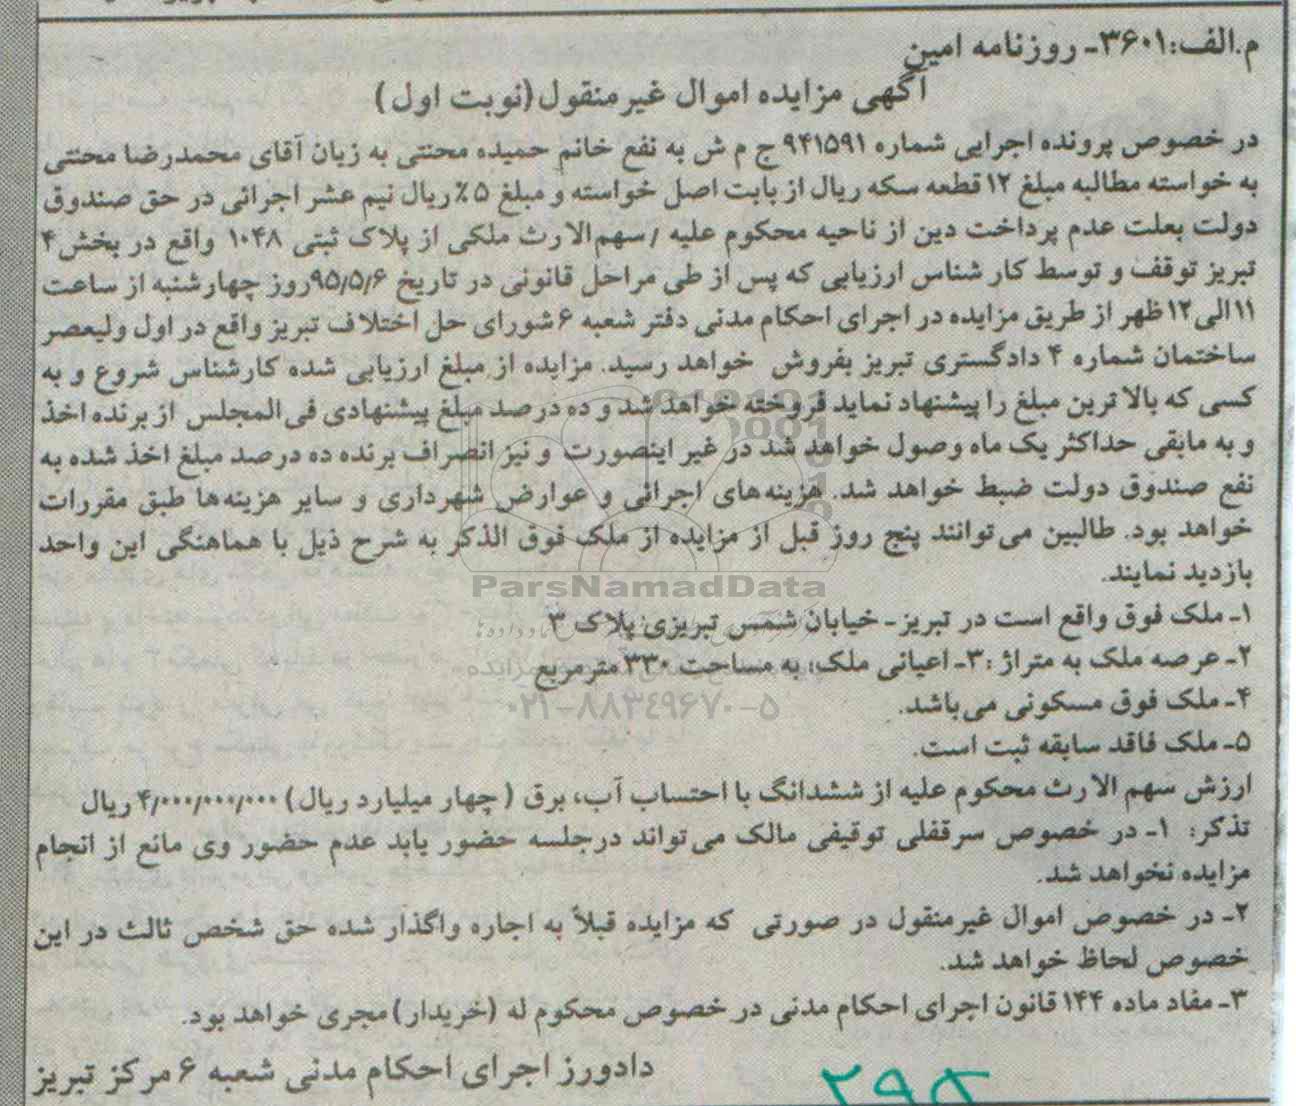 م.الف:۳۶۰۱- روزنامه امین
آگهی مزایده اموال غیرمنقول(نوبت اول)
در خصوص پرونده اجرایی شماره ۹۴۱۵۹۱ ج م ش به نفع خانم حمیده محنتی به زیان آقای محمدرضا محنتی
به خواسته مطالبه مبلغ ۱۲ قطعه سکه ریال از بابت اصل خواسته و مبلغ ۵٪ ریال نیم عشر اجرائی در حق صندوق
دولت بعلت عدم پرداخت دین از ناحیه محکوم علیه /سهم‌الارث ملکی از پلاک ثبتی ۱۰۴۸ واقع در بخش۴
تبریز توقف و توسط کارشناس ارزیابی که پس از طی مراحل قانونی در تاریخ ۹۵/۵/۶روز چهارشنبه از ساعت
۱۱الی۱۲ ظهر از طریق مزایده در اجرای احکام مدنی دفتر شعبه ۶ شورای حل اختلاف تبریز واقع در اول ولیعصر
ساختمان شماره ۴ دادگستری تبریز بفروش خواهد رسید. مزایده از مبلغ ارزیابی شده کارشناس شروع و به
کسی که بالاترین مبلغ را پیشنهاد نماید فروخته خواهد شد و ده درصد مبلغ پیشنهادی فی‌المجلس از برنده اخذ
و به مابقی حداکثر یک ماه وصول خواهد شد در غیر اینصورت و نیز انصراف برنده ده درصد مبلغ اخذ شده به
نفع صندوق دولت ضبط خواهد شد. هزینه‌های اجرائی و عوارض شهرداری و سایر هزینه‌ها طبق مقررات
خواهد بود. طالبین می‌توانند پنج روز قبل از مزایده از ملک فوق الذکر به شرح ذیل با هماهنگی این واحد
بازدید نمایند.
ParsNamadData
۱- ملک فوق واقع است در تبریز-خیابان شمس تبریزی پلاک ۳
۲- عرصه ملک به متراژ :۳- اعیانی ملک: به مساحت ۳۳۰ مترمربع
۴- ملک فوق مسکونی می‌باشد.
۰۲۱-۸۸۳۴۹۶۷۰-۵
۵- ملک فاقد سابقه ثبت است.
ارزش سهم الارث محکوم علیه از ششدانگ با احتساب آب، برق ( چهار میلیارد ریال) ۴/۰۰۰/۰۰۰/۰۰۰ ریال
تذکر: ۱- در خصوص سرقفلی توقیفی مالک می‌تواند درجلسه حضور یابد عدم حضور وی مانع از انجام
مزایده نخواهد شد.
۲- در خصوص اموال غیرمنقول در صورتی که مزایده قبلاً به اجاره واگذار شده حق شخص ثالث در این
خصوص لحاظ خواهد شد.
۳- مفاد ماده ۱۴۴ قانون اجرای احکام مدنی در خصوص محکوم له (خریدار) مجری خواهد بود.
دادورز اجرای احکام مدنی شعبه ۶ مرکز تبریز